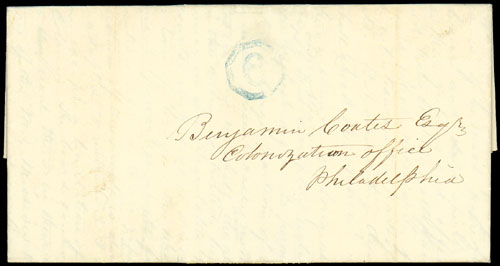 6
Benjamin Coates Esqr
Colonization office
Philadelphia